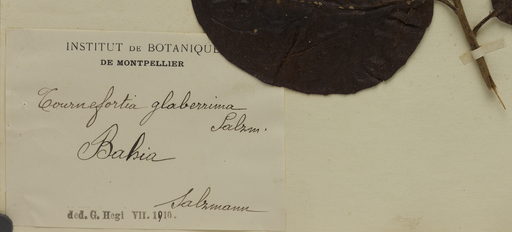 INSTITUT DE BOTANIQUE
DE MONTPELLIER
Tournefortia glaberrima
Salzm.
Bahia
Salzmann
ded. G. Hegi VII. 1910.